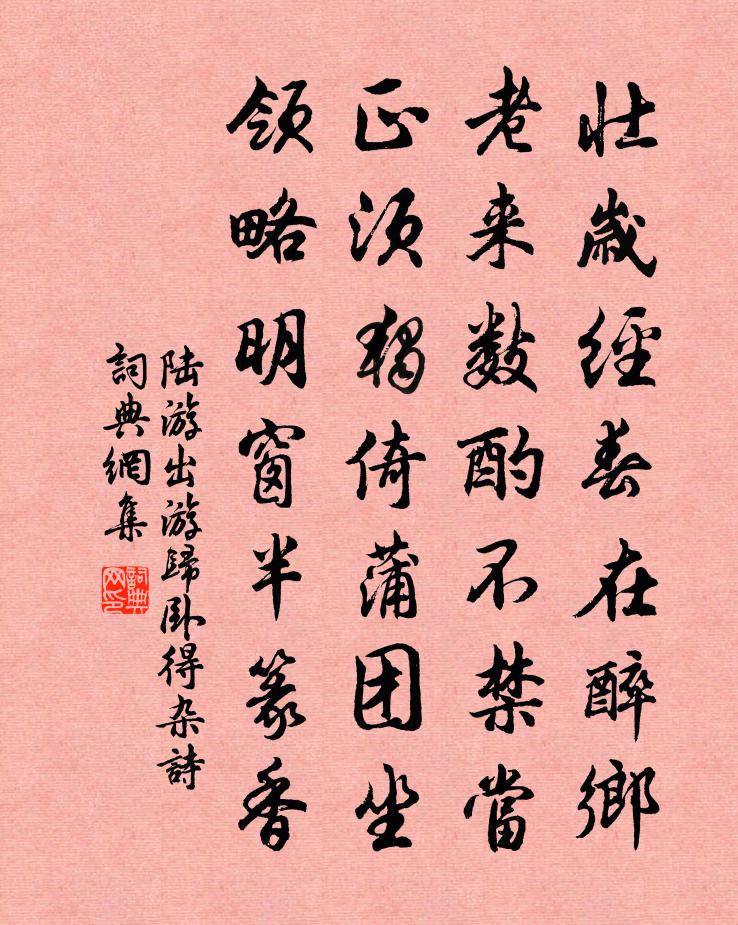 壮歲經春在醉鄉
老来數酌不禁當
正須獨倚蒲团坐
領略明窗半篆香
陆游出游歸卧得杂詩
詞典網集
詞典网印